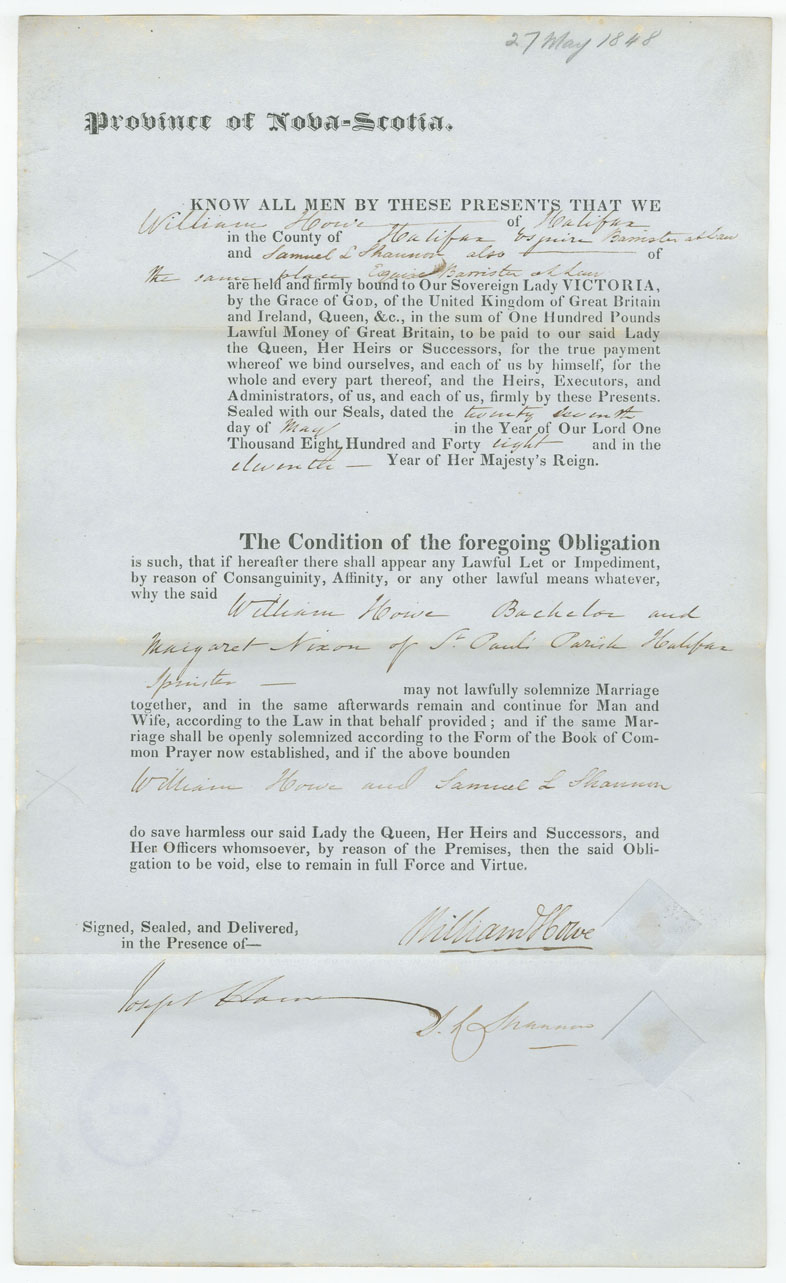 27 May 1848
Province of Nova-Scotia.
KNOW ALL MEN BY THESE PRESENTS THAT WE
William Howe of Halifax
in the County of Halifax Esquire Barrister at Law
and Samuel L Shannon also of
the same place Esquire Barrister at Law
are held and firmly bound to Our Sovereign Lady VICTORIA,
by the Grace of GOD, of the United Kingdom of Great Britain
and Ireland, Queen, &c., in the sum of One Hundred Pounds
Lawful Money of Great Britain, to be paid to our said Lady
the Queen, Her Heirs or Successors, for the true payment
whereof we bind ourselves, and each of us by himself, for the
whole and every part thereof, and the Heirs, Executors, and
Administrators, of us, and each of us, firmly by these Presents.
Sealed with our Seals, dated the twenty seventh
day of May in the Year of Our Lord One
Thousand Eight Hundred and Forty eight and in the
eleventh — Year of Her Majesty's Reign.
The Condition of the foregoing Obligation
is such, that if hereafter there shall appear any Lawful Let or Impediment,
by reason of Consanguinity, Affinity, or any other lawful means whatever,
why the said
William Howe Bachelor and
Margaret Nixon of St. Pauls Parish Halifax
Spinster — may not lawfully solemnize Marriage
together, and in the same afterwards remain and continue for Man and
Wife, according to the Law in that behalf provided; and if the same Mar-
riage shall be openly solemnized according to the Form of the Book of Com-
mon Prayer now established, and if the above bounden
William Howe and Samuel L Shannon
do save harmless our said Lady the Queen, Her Heirs and Successors, and
Her Officers whomsoever, by reason of the Premises, then the said Obli-
gation to be void, else to remain in full Force and Virtue.
Signed, Sealed, and Delivered,
in the Presence of—
William Howe
Joseph Howe
S. L. Shannon